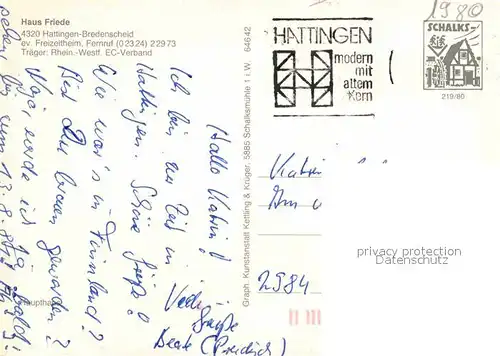 Haus Friede
4320 Hattingen-Bredenscheid
ev. Freizeitheim, Fernruf (02324) 22973
Träger: Rhein.-Westf. EC-Verband
1980
HATTINGEN
modern
mit
altem
Kern
SCHALKS-
219/80
Graph. Kunstanstalt Kettling & Krüger, 5885 Schalksmühle 1 i. W. 64642
Hallo Katrin!
Ich bin zur Zeit in
Hattingen. Schöne Grüße!
Wie war's in Finnland?
Bist Du braun geworden?
Naja, werde ich ja
sehen
13.8.80
Viele
Grüße
Beate
Katrin
Am
2984
privacy protection
Datenschutz